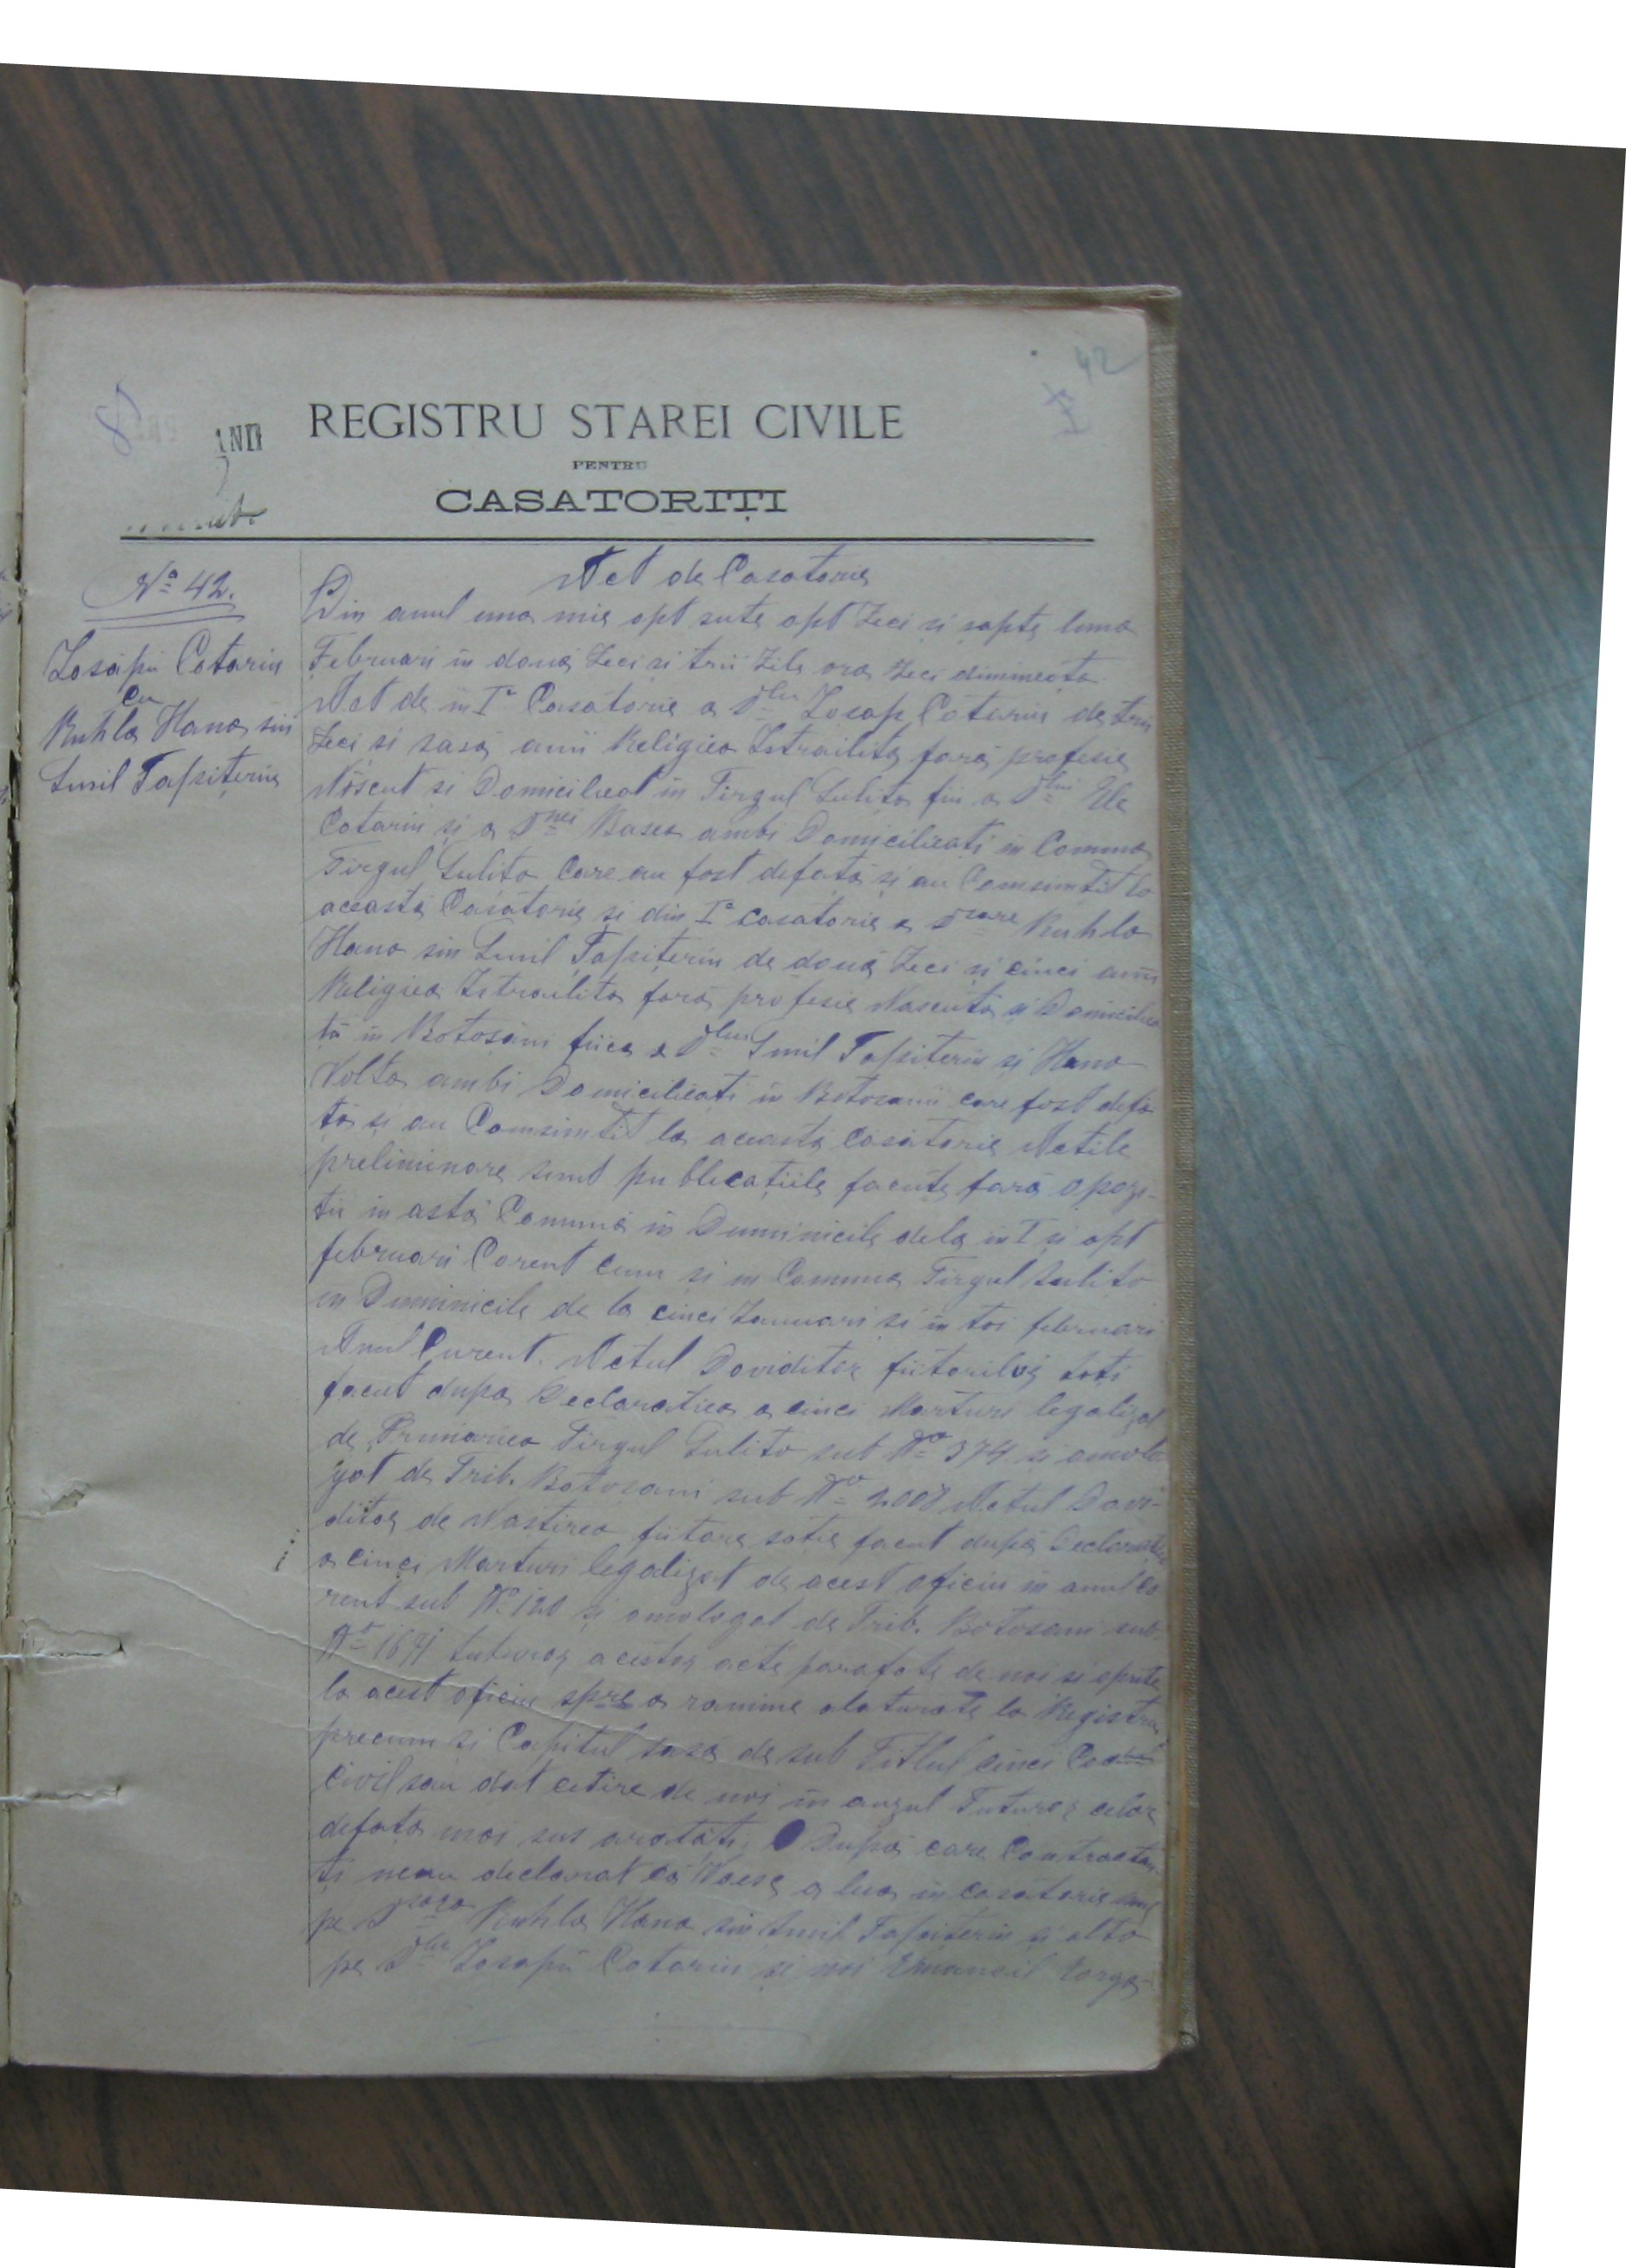 42
REGISTRU STAREI CIVILE
PENTRU
CASATORIȚI
No 42.
Iosapü Cotariu
cu
Ruhla Hana sin
Smil Tapiteriu
Act de Casatorie
Din anul una mie opt sute opt zeci si sapte luna
Februari in două zeci si trii zile ora zeci dimineota
Act de in Ia Casătorie a Dlui Iosap Cotariu de trei
zeci si sasă anii Religiea Istrailita fară profesie
Născut si Domiciliat in Tirgul Sulita fiu a Dlui Ele
Cotariu și a Dnei Basea ambi Domiciliati in Comuna
Tirgul Sulita Care au fost defată și au Comsimtit la
această Casătorie și din Ia casatorie a Dsoare Ruhla
Hana sin Smil Tapiteriu de două zeci și cinci anii
Religiea Istrailita fară profesie Nascută si Domicilia
tă in Botosăni fiica a Dlui Smil Tapiteriu si Hana
Nolta ambi Domiciliati in Botosanii care fost defa
tă și au Comsimtit la această căsătorie Actile
preliminare sunt publicațiile facute fară opozi-
tii in astă Comună in Duminicile dela in I si opt
februari Corent cum si in Comuna Tirgul Sulita
in Duminicile de la cinci Ianuari si in toi februari
Anul Curent. Actul Doviditor fiitorilor soti
facut dupa Declaratiea a cinci Marturi legalizat
de Primăriea Tirgul Sulita sub No 374 si amolo
gat de Trib. Botosani sub No 2008 Actul Dovi-
ditor de Nastirea fiitoare sotie facut după Declaratiea
a cinci Marturi legalizat de acest oficiu in anul Co
rent sub No 120 și omologat de Trib. Botosani sub
No 1691 tuturor acestor acte parafate de noi si oprite
la acest oficiu spre a ramine alaturate la Registru
precum si Capitul sasa de sub Titlul cinci
Civil sau dat cetire de noi in auzul Tuturor celor
defata mai sus aratati. După care Contractan
ți neau declarat că Voesc a lua in casatorie unu
pe Dsoara Ruhla Hana sin Smil Tapiteriu și alta
pe Dlui Iosapü Cotariu și noi Emanoil Iorga-